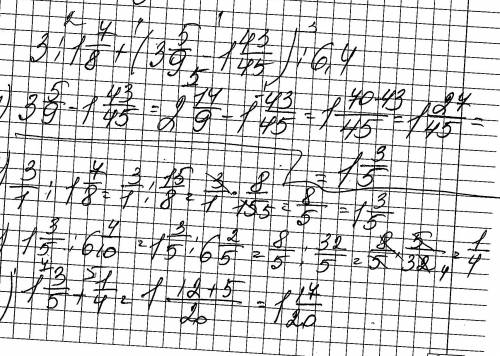 2 1 3
3 : 1 7/8 + (3 5/9 - 1 43/45) : 6,4
) 3 5/9 - 1 43/45 = 2 14/9 - 1 43/45 = 1 (70-43)/45 = 1 27/45 =
= 1 3/5
) 3/1 : 1 7/8 = 3/1 : 15/8 = 3/1 · 8/15 5 = 8/5 = 1 3/5
) 1 3/5 : 6 4/10 = 1 3/5 : 6 2/5 = 8/5 : 32/5 = 8/5 · 5/32 4 = 1/4
) 1 3/5 + 1/4 = 1 (12+5)/20 = 1 17/20